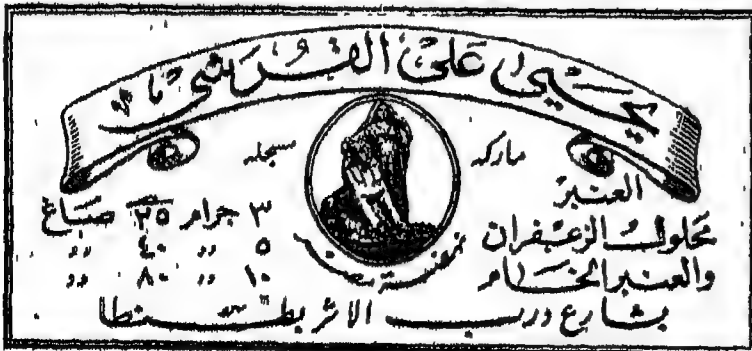 يحيى على القرشى
ماركه مسجله
العنبر
محلول الزعفران
والعنبر الخام
٣ جرام ٢٥ صباغ
٥ دد ٤٠ دد
١٠ دد ٨٠ دد
بشارع درب الاثر بطنطا